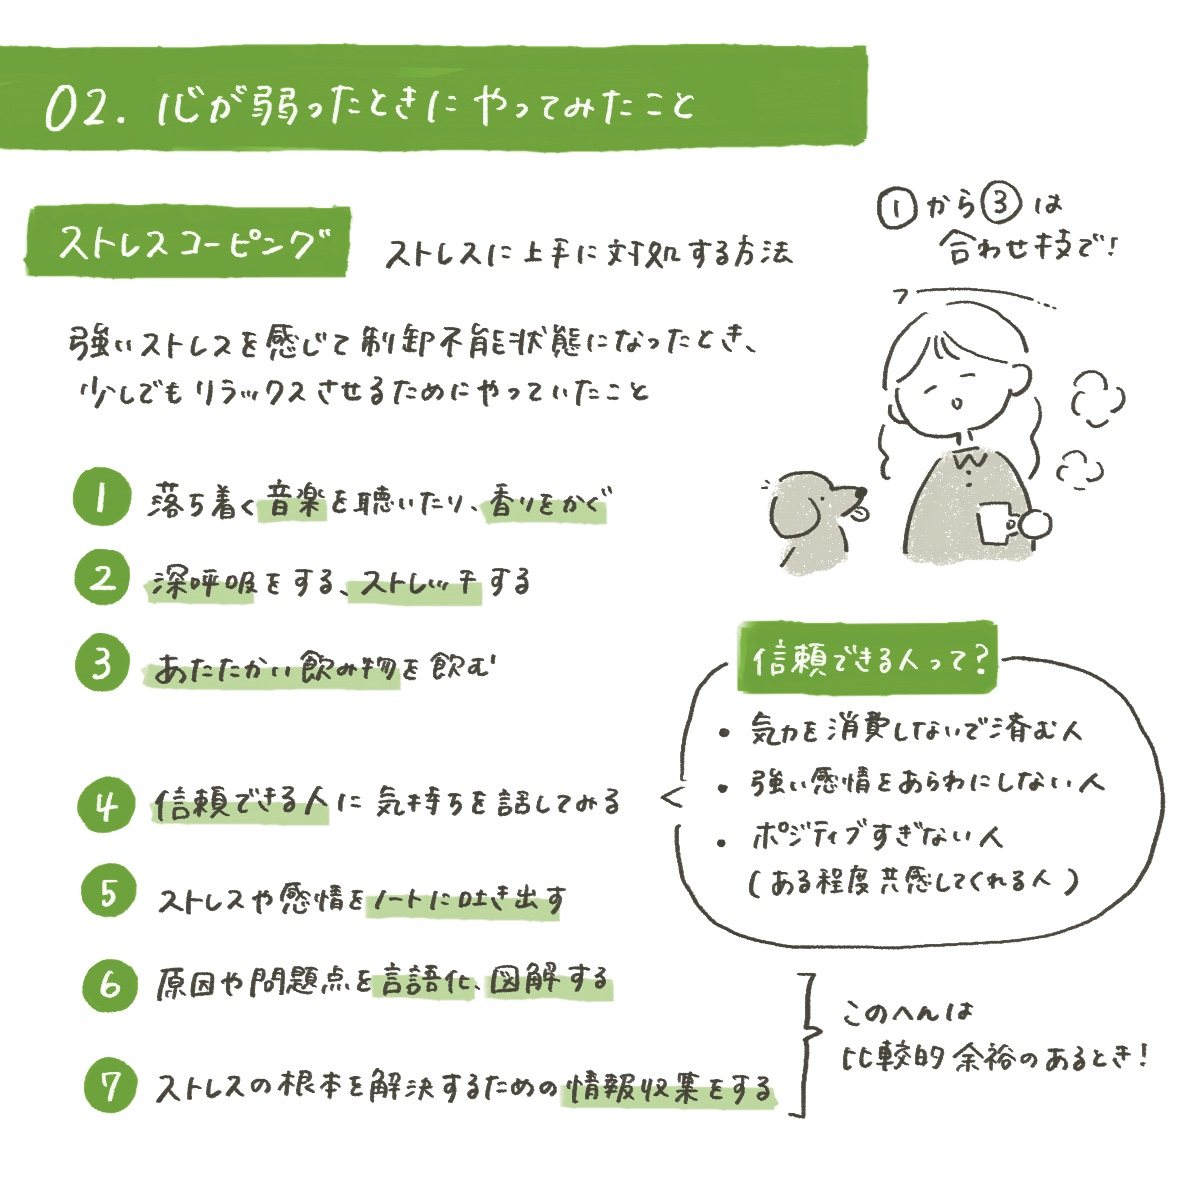 02. 心が弱ったときにやってみたこと
ストレスコーピング
ストレスに上手に対処する方法
①から③は
合わせ技で！
強いストレスを感じて制御不能状態になったとき、
少しでもリラックスさせるためにやっていたこと
1 落ち着く音楽を聴いたり、香りをかぐ
2 深呼吸をする、ストレッチする
3 あたたかい飲み物を飲む
4 信頼できる人に気持ちを話してみる
信頼できる人って？
・気力を消費しないで済む人
・強い感情をあらわにしない人
・ポジティブすぎない人
（ある程度共感してくれる人）
5 ストレスや感情をノートに吐き出す
6 原因や問題点を言語化、図解する
7 ストレスの根本を解決するための情報収集をする
このへんは
比較的余裕のあるとき！